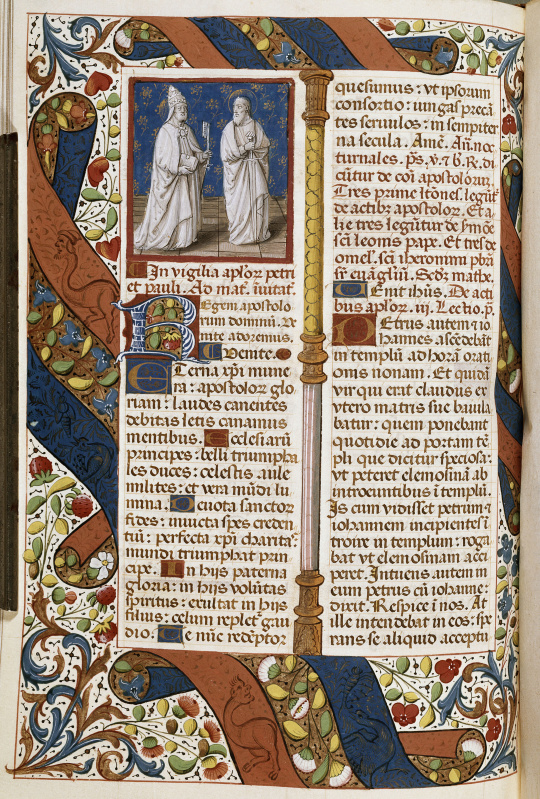 In vigilia apl'oꝝ petri
et pauli. Ad mat'. īuitat'.
Regem apostolo
rum dominū. Ve
nite adoremus.
Venite.
Eterna xp̄i mune
ra: apostoloꝝ glo
riam: laudes canentes
debitas letis canamus
mentibus. Ecclesiarū
principes: belli triumpha
les duces: celestis aule
milites: et vera mūdi lu
mina. Deuota sanctoꝝ
fides: inuicta spes creden
tiū: perfecta xp̄i charita'
mundi triumphat prin
cipe. In hijs paterna
gloria: in hijs volūtas
spiritus: exultat in hijs
filius: celum repletꝰ gau
dio. Te nūc redēptoꝛ
quesumus: vt ipsorum
consortio: iungas precā
tes seruulos: in sempiter
na secula. Amē. An̄. noc
turnales. pš. v. & b. R. di
cūtur de cōi apostoloꝝ.
Tres prime lc̄ones. legūt'
de actibꝰ apostoloꝝ. Et a
lie tres legūtur de sermōe
sc̄i leonis pape. Et tres de
omel'. sc̄i iheronimi pb̄ri
sr̄ euāgliū. Scd'ꝫ mathe.
Emit ihūs. De acti
bus apl'oꝝ. iij. Lectio. p̄.
Petrus autem et io
hannes ascēdebāt
in templū ad horā orati
onis nonam. Et quidā
vir qui erat claudus ex
vtero matris sue baiula
batur: quem ponebant
quotidie ad portam tē
pli que dicitur speciosa:
vt peteret elemosinā ab
introeuntibus ī templū.
Is cum vidisset petrum et
iohannem incipientes ī
troire in templum: roga
bat vt elemosinam acci
peret. Intuens autem in
eum petrus cū iohanne:
dixit. Respice ī nos. At
ille intendebat in eos: spe
rans se aliquid acceptu